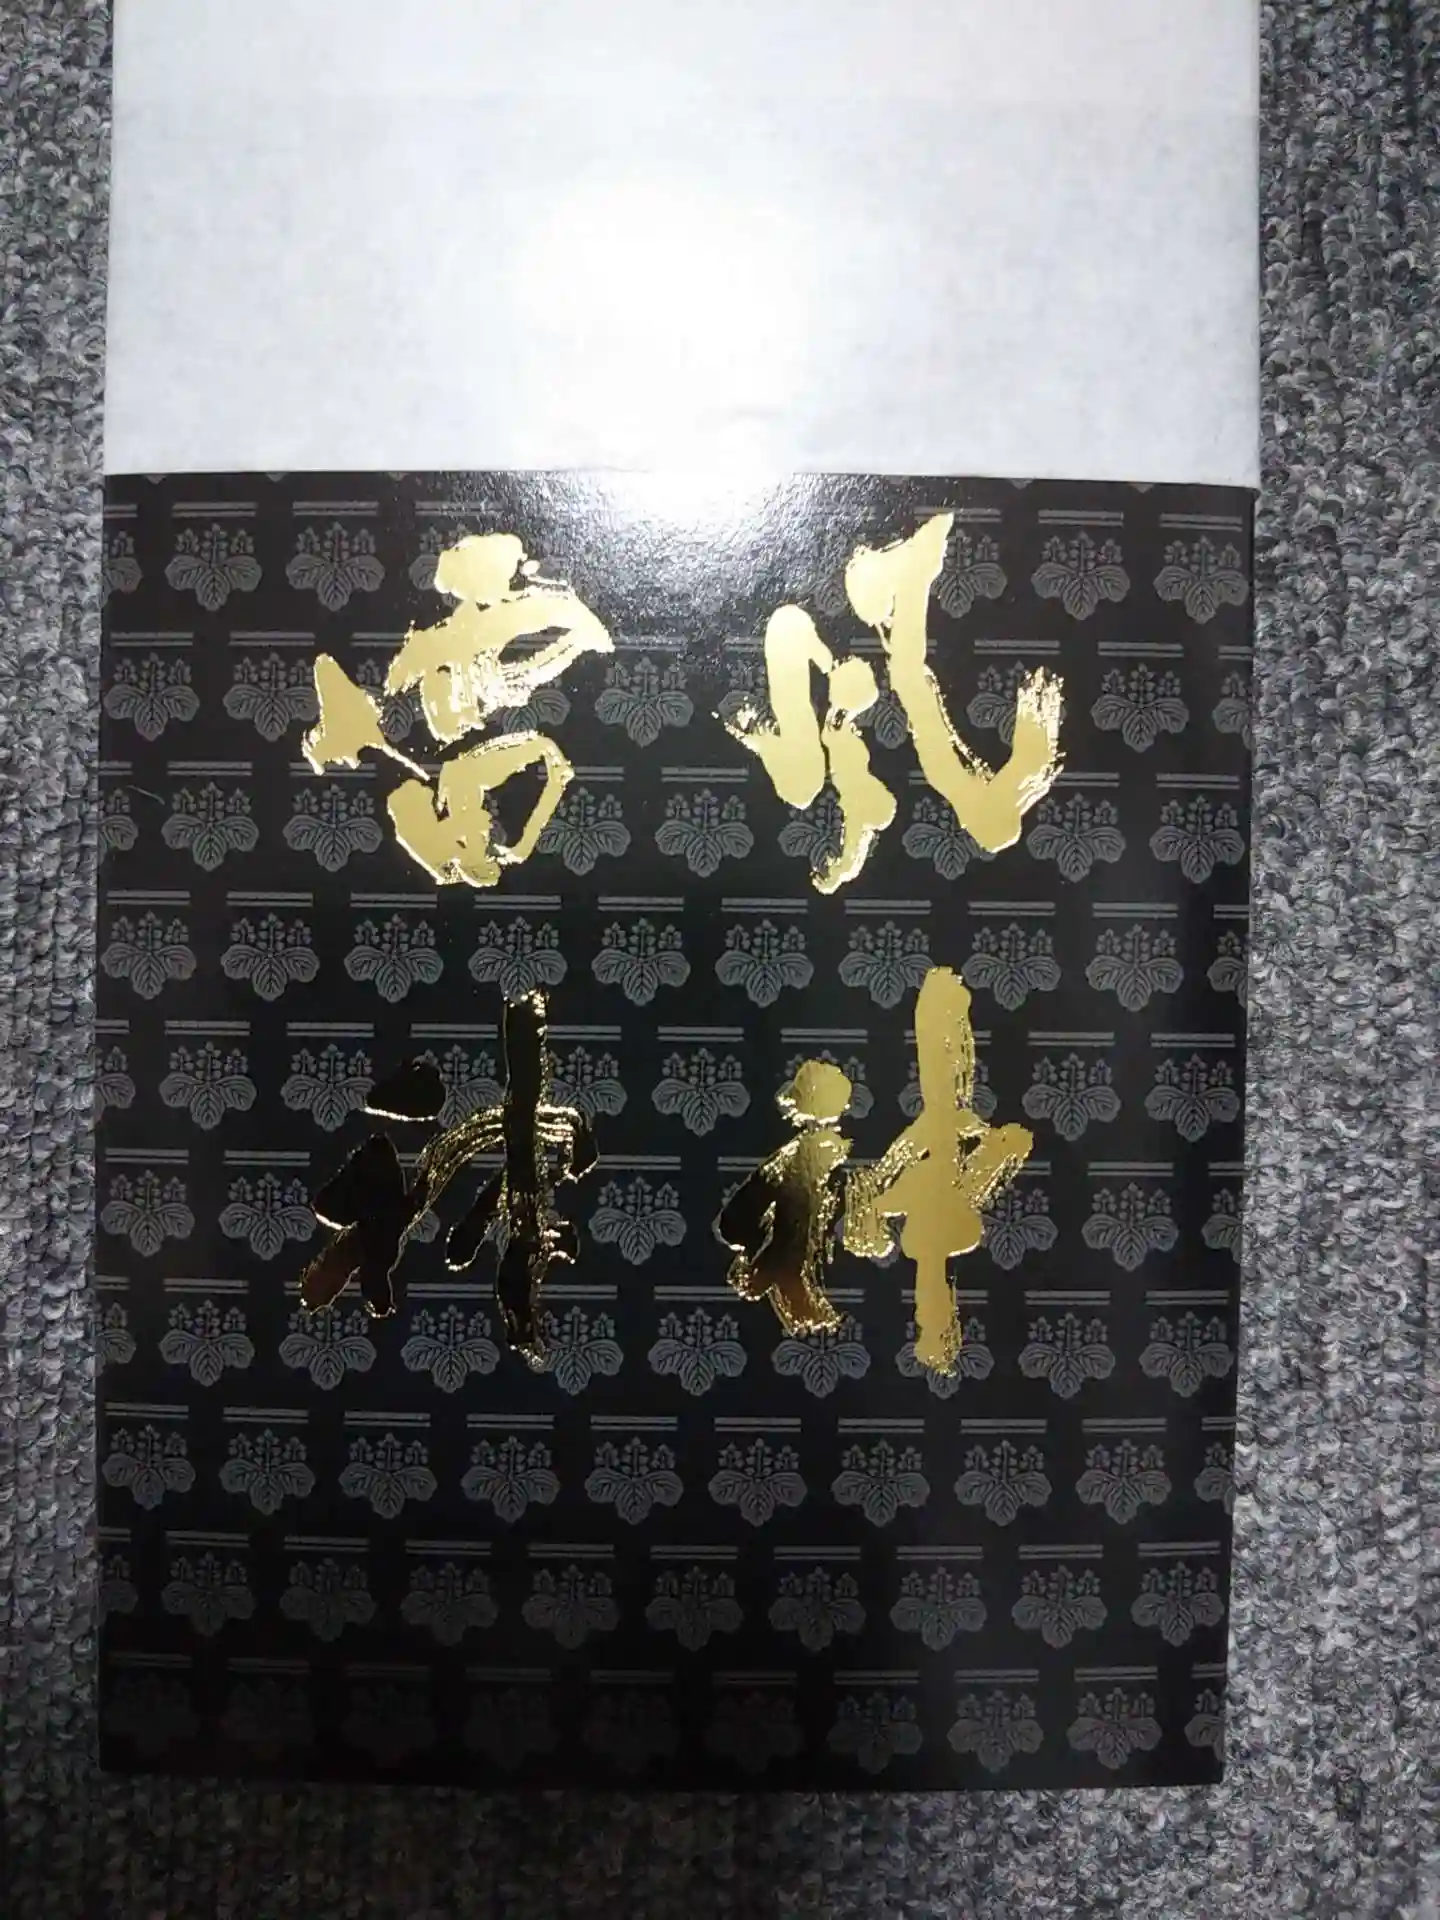 風神
雷神